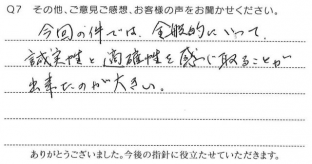 Q7 その他、ご意見ご感想、お客様の声をお聞かせください。
今回の件では、全般的にいって、
誠実性と適確性を感じ取ることが
出来たのが大きい。
ありがとうございました。今後の指針に役立たせていただきます。